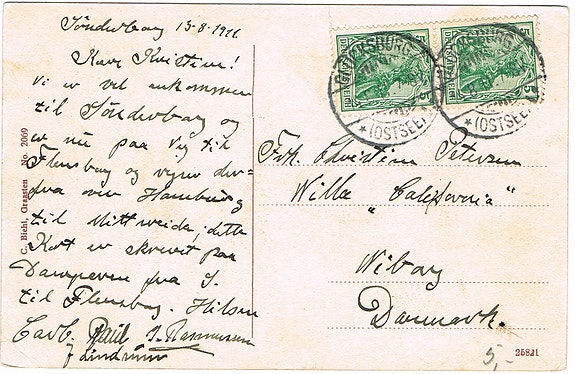 Sönderborg 13-8-1911
Kære Kristine!
Vi er vel ankommen
til Sönderborg og
er nu paa Vej til
Flensborg og rejser der-
fra over Hamburg
til Mittweida, dette
Kort er skrevet paa
Damperen fra S.
til Flensborg. Hilsen
Carl. Paul J. Rasmussen
Lindrum
C. Biehl, Graasten No. 2069
GLÜCKSBURG
* (OSTSEE)
GLÜCKSBURG
* (OSTSEE)
5
5
5
5
Frk. Christine Petersen
Willa „California“
Wiborg
Danmark.
5,-
25821